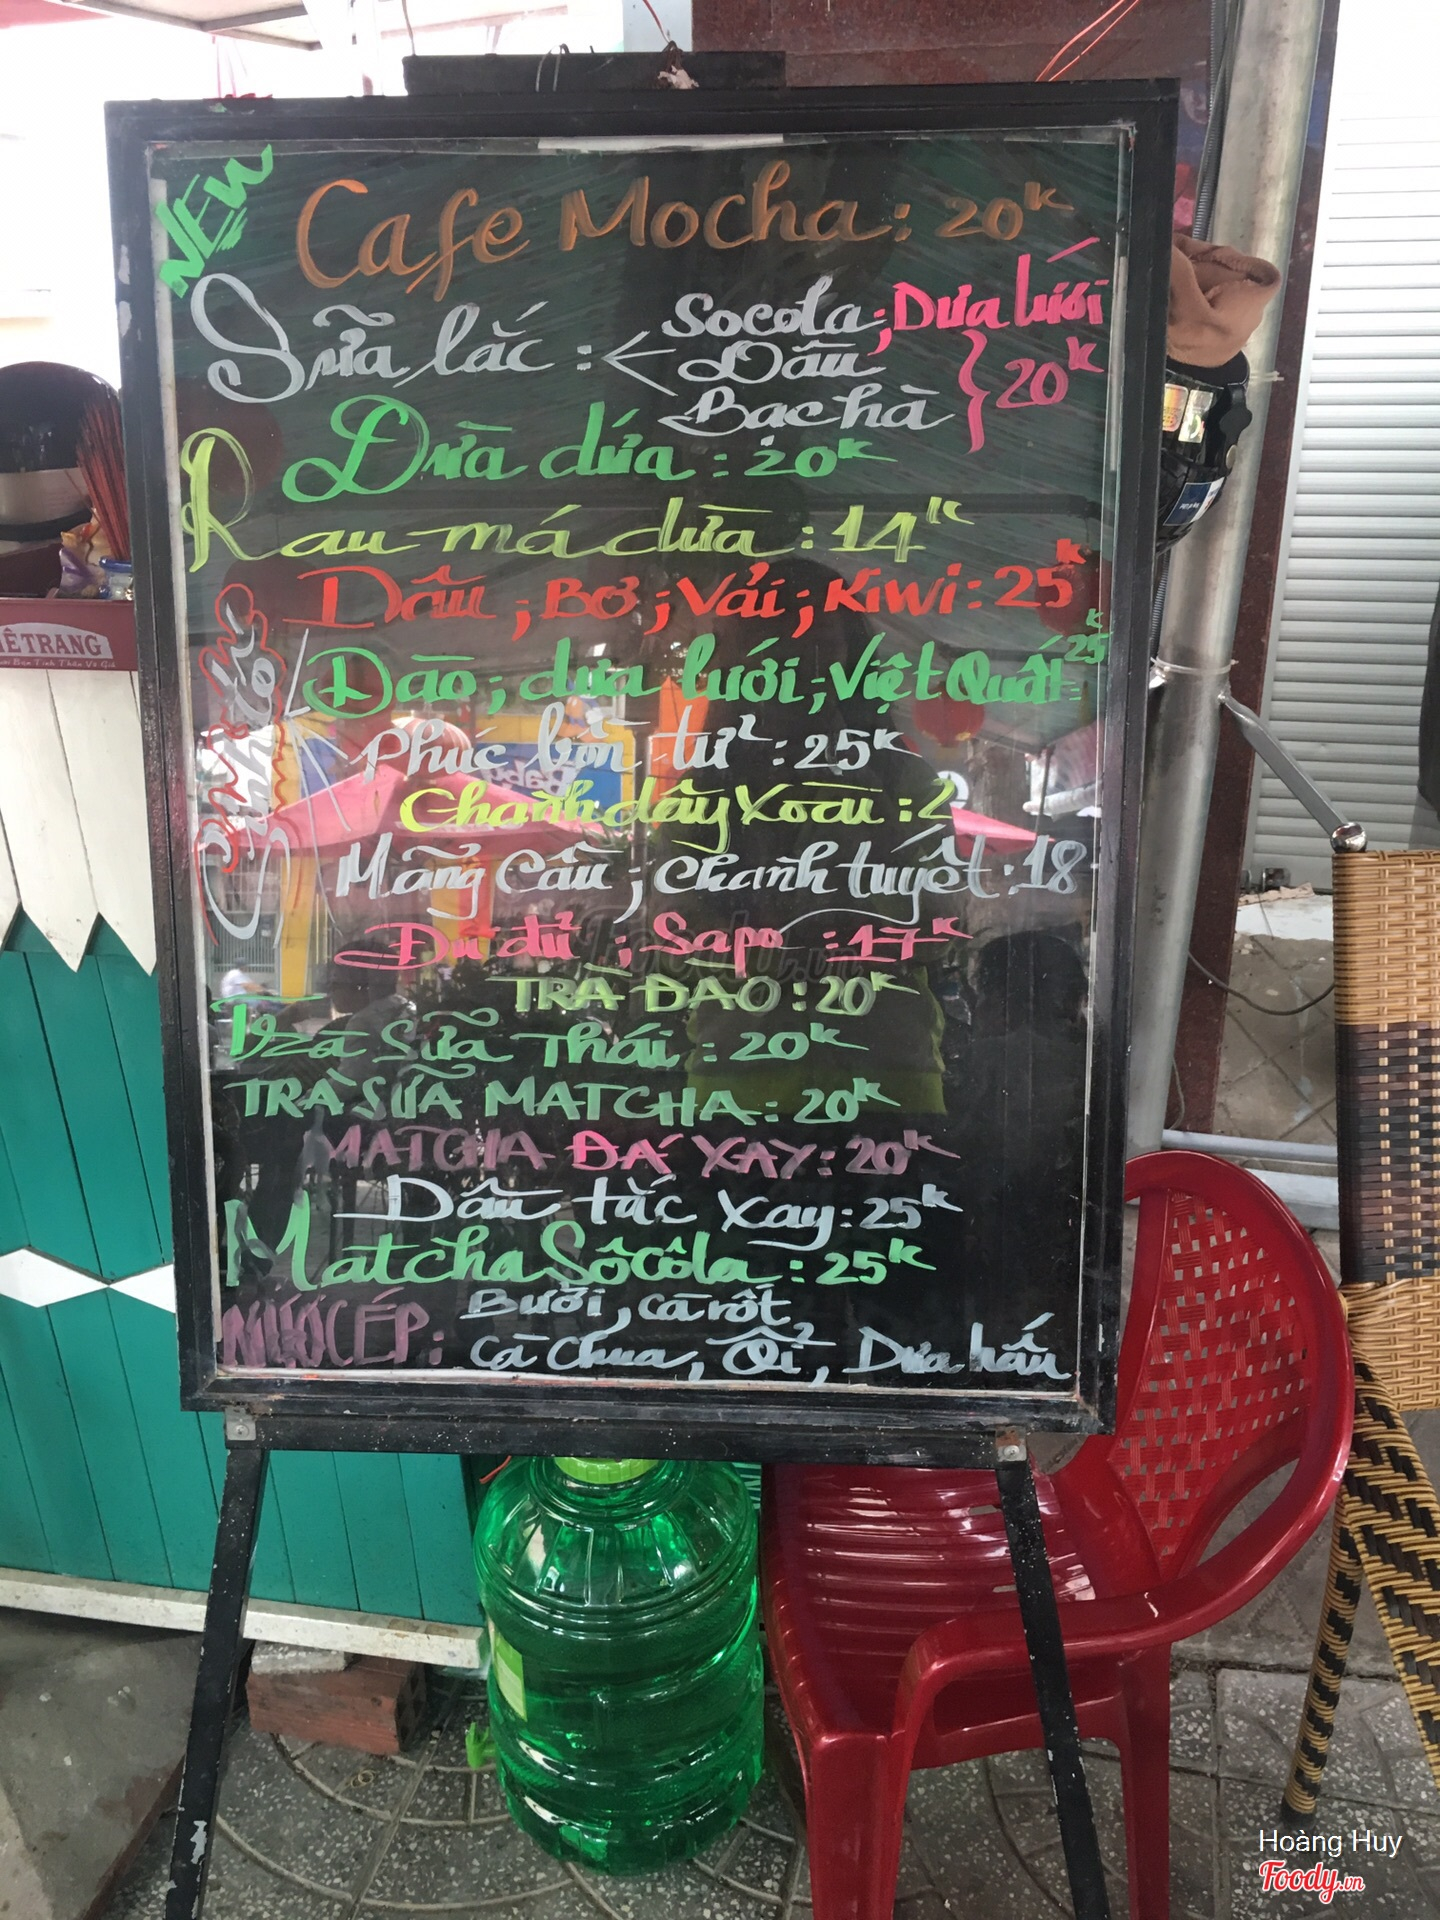 NEW
Cafe Mocha: 20k
Sữa lắc: Socola; Dưa lưới
Dâu
Bạc hà } 20k
Dừa dứa: 20k
Rau má dừa: 14k
Sinh tố
Dâu; Bơ; Vải; Kiwi: 25k
Đào; dưa lưới; Việt Quất: 25k
Phúc bồn tử: 25k
Chanh dây Xoài: 2
Mãng Cầu; Chanh tuyết: 18
Đu đủ; Sapo: 17k
TRÀ ĐÀO: 20k
Trà Sữa Thái: 20k
TRÀ SỮA MATCHA: 20k
MATCHA ĐÁ XAY: 20k
Dâu tắc Xay: 25k
Matcha Sôcôla: 25k
NƯỚC ÉP: Bưởi, cà rốt,
Cà Chua, Ổi, Dưa hấu
ÊTRANG
Hoàng Huy
Foody.vn